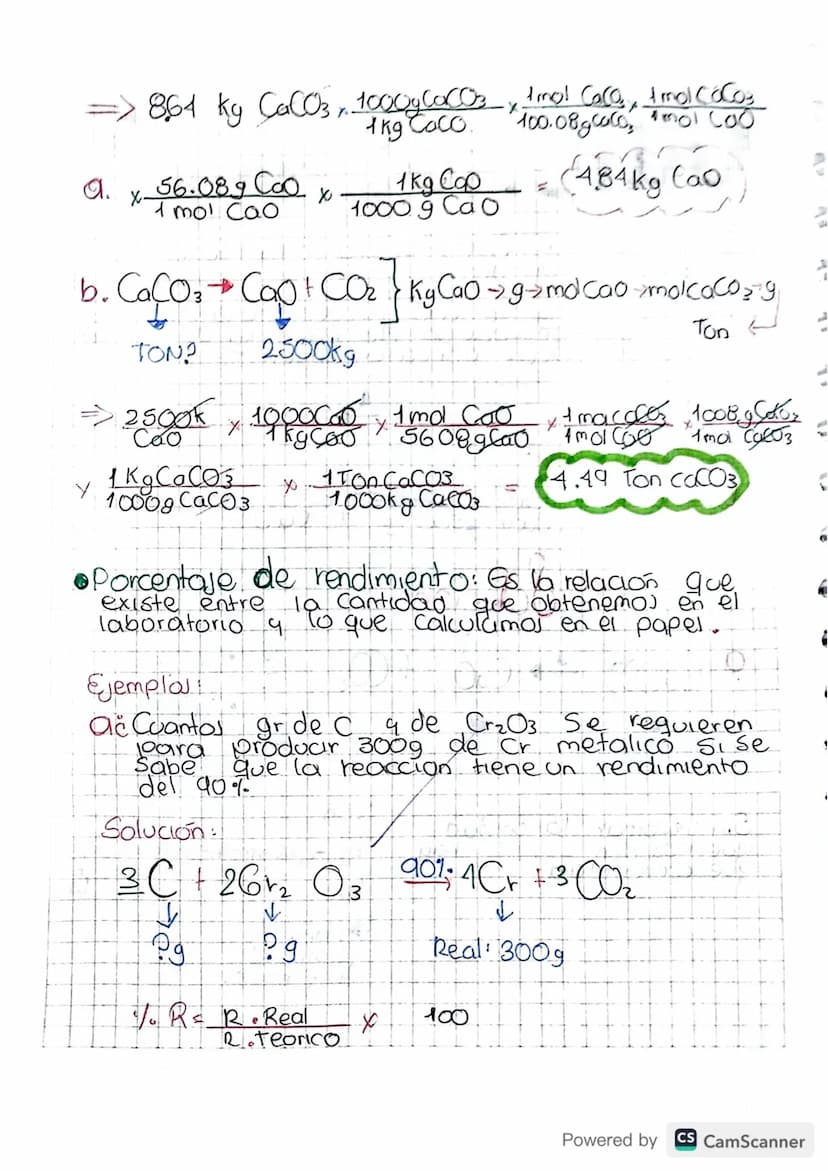 => 864 kg CaCO3 x 1000gCaCO3/1kg CaCO x 1mol CaCO3/100.08gCaCO3 x 1molCaCO3/1mol CaO
a. x 56.08g CaO/1 mol CaO x 1kg CaO/1000 g CaO = 4.84kg CaO
b. CaCO3 → CaO + CO2 } KgCaO → g → molCaO → molCaCO3 → g
Ton
TON? 2500kg
=> 2500k/CaO x 1000CaO/1kgCaO x 1mol CaO/5608gCaO x 1molCaCO3/1molCaO x 1008gCaCO3/1mol CaCO3
y 1KgCaCO3/1000gCaCO3 x 1TonCaCO3/1000kgCaCO3 = 4.49 Ton CaCO3
•Porcentaje de rendimiento: Es la relacion que
existe entre la cantidad que obtenemos en el
laboratorio y lo que calculamos en el papel.
Ejemplos:
a¿Cuantos gr de C y de Cr2O3 Se requieren
para producir 300g de Cr metalico si se
sabe que la reaccion tiene un rendimiento
del 90%
Solución:
3C + 2Cr2 O3 90% → 4Cr + 3CO2
?g ?g Real: 300g
% R = R. Real/R. Teorico x 100
Powered by CS CamScanner